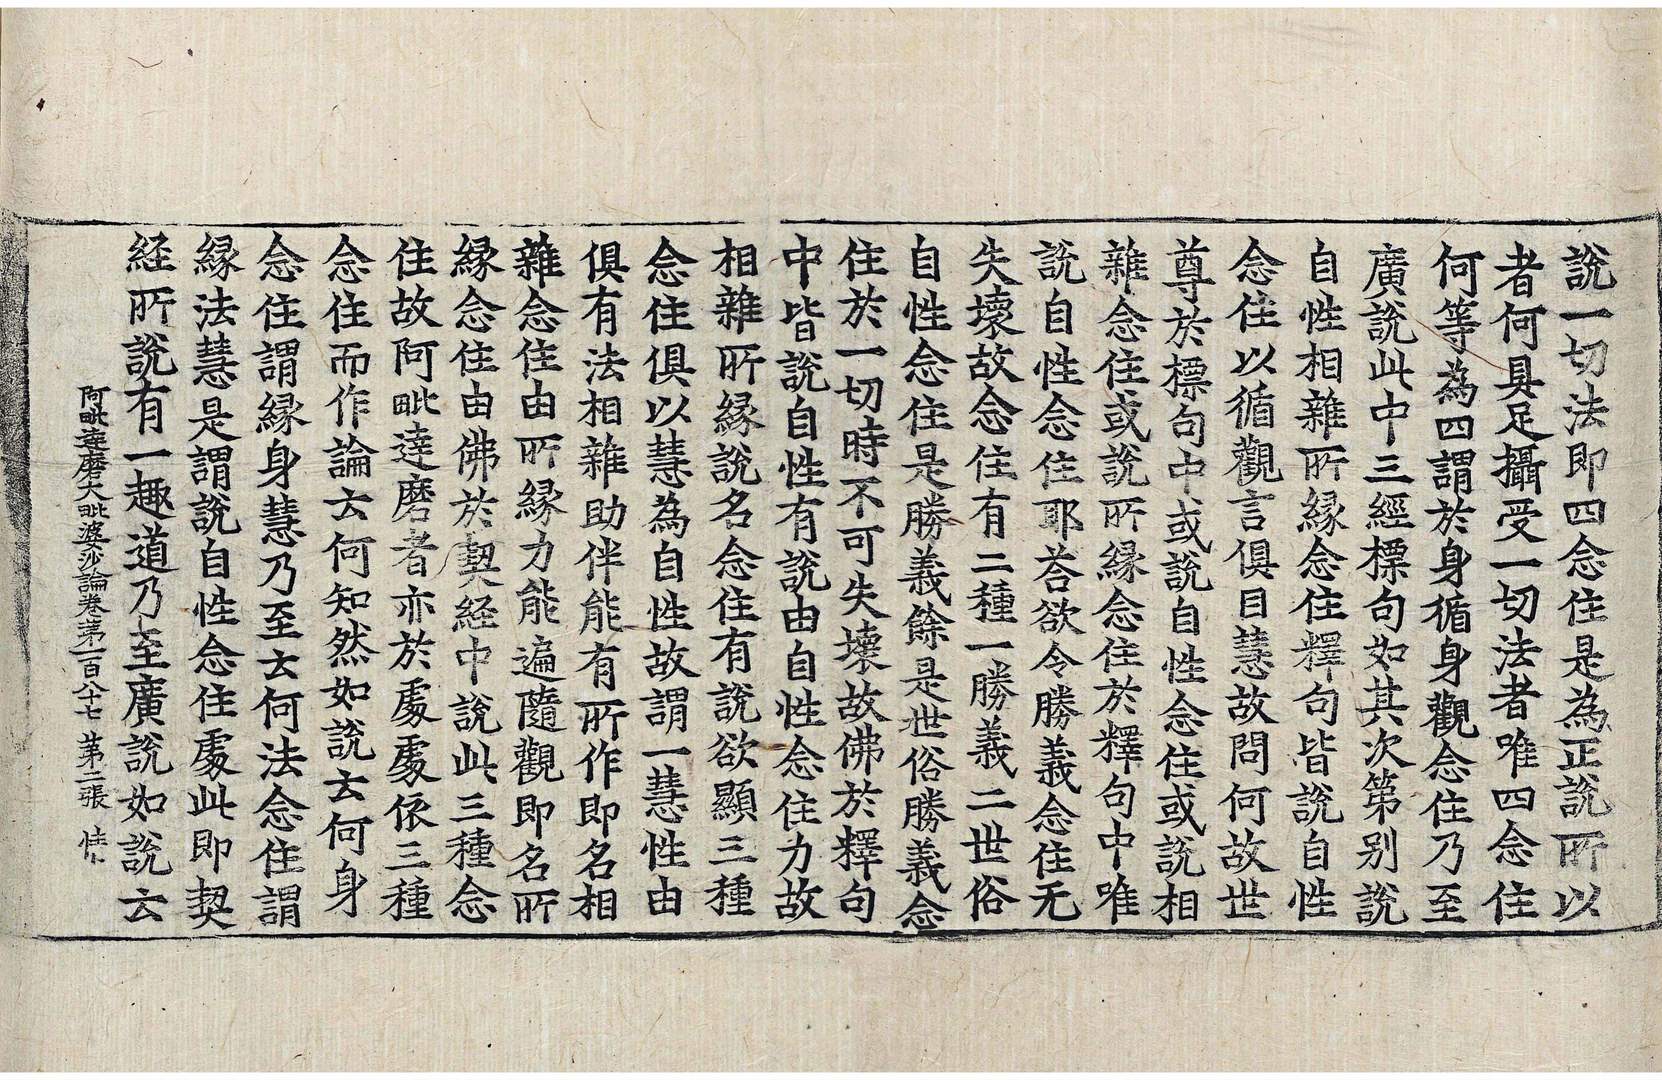 說一切法即四念住是為正說所以
者何具足攝受一切法者唯四念住
何等為四謂於身循身觀念住乃至
廣說此中三經標句如其次第別說
自性相雜所緣念住釋句皆說自性
念住以循觀言俱目慧故問何故世
尊於標句中或說自性念住或說相
雜念住或說所緣念住於釋句中唯
說自性念住耶荅欲令勝義念住无
失壞故念住有二種一勝義二世俗
自性念住是勝義餘是世俗勝義念
住於一切時不可失壞故佛於釋句
中皆說自性有說由自性念住力故
相雜所緣說名念住有說欲顯三種
念住俱以慧為自性故謂一慧性由
俱有法相雜助伴能有所作即名相
雜念住由所緣力能遍隨觀即名所
緣念住由佛於契経中說此三種念
住故阿毗達磨者亦於處處依三種
念住而作論云何知然如說云何身
念住謂緣身慧乃至云何法念住謂
緣法慧是謂說自性念住處此即契
経所說有一趣道乃至廣說如說云
阿毗達磨大毗婆沙論卷第一百八十七 第二張